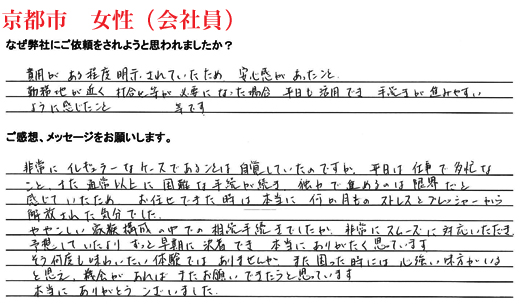 京都市　女性（会社員）
なぜ弊社にご依頼をされようと思われましたか？
費用がある程度明示されていたため、安心感があったこと。
勤務地が近く打合せ等が必要になった場合平日も活用でき手続きが進みやすい
ように感じたこと　　　等です
ご感想、メッセージをお願いします。
非常にイレギュラーなケースであることは自覚していたのですが、平日は仕事で多忙な
こと、また通常以上に困難な手続が続き、独力で進めるのは限界だと
感じていたため　お任せできた時は本当に何か月もの ストレスとプレッシャーから
解放された気分でした。
ややこしい家族構成の中での相続手続きでしたが、非常にスムーズに対応いただき
予想していたよりずっと早期に決着でき　本当にありがたく思っています
そう何度も味わいたい体験ではありませんが　また困った時には心強い味方がいる
と思え、機会があればまたお願いできたらと思っています
本当にありがとうございました。